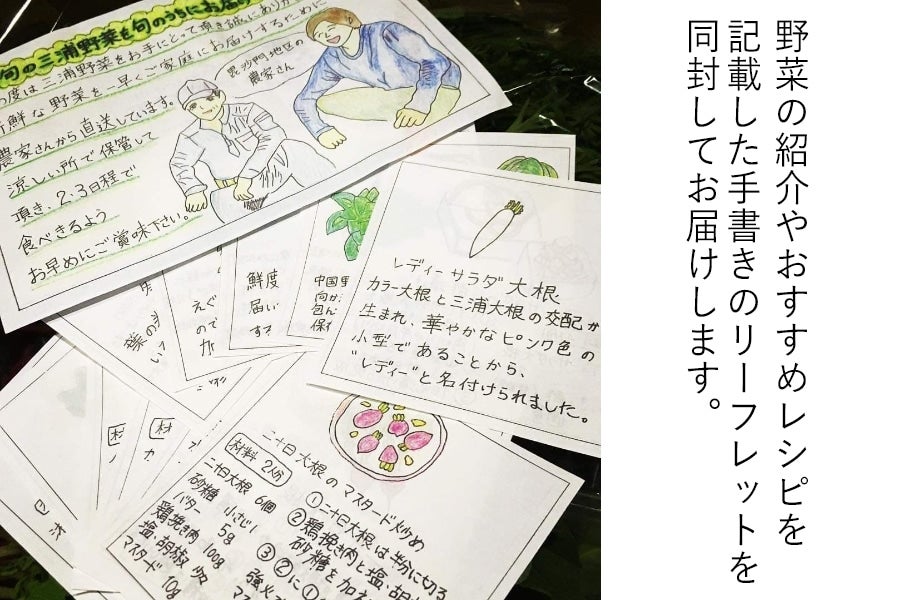 野菜の紹介やおすすめレシピを
記載した手書きのリーフレットを
同封してお届けします。
旬の三浦野菜を旬のうちにお届け
度は三浦野菜をお手にとって頂き誠にありが
新鮮な野菜を一早くご家庭にお届けするために
農家さんから直送しています。
涼しい所で保管して
頂き、2、3日程で
食べきるよう
お早めにご賞味下さい。
毘沙門地区の
農家さん
レディーサラダ大根
カラー大根と三浦大根の交配が
生まれ、華やかなピンク色の
小型であることから、
"レディー"と名付けられました。
鮮度
届い
す
中国
向か
包ん
保
えぐ
ので
が
葉の
二十日大根のマスタード炒め
材料 2人分
二十日大根 6個
砂糖 小さじ1
バター 5g
鶏挽き肉 100g
塩、胡椒 少々
マスタード 10g
①二十日大根は半分に切る
②鶏挽き肉と塩、胡
砂糖を加え
③②に①
強火
マス